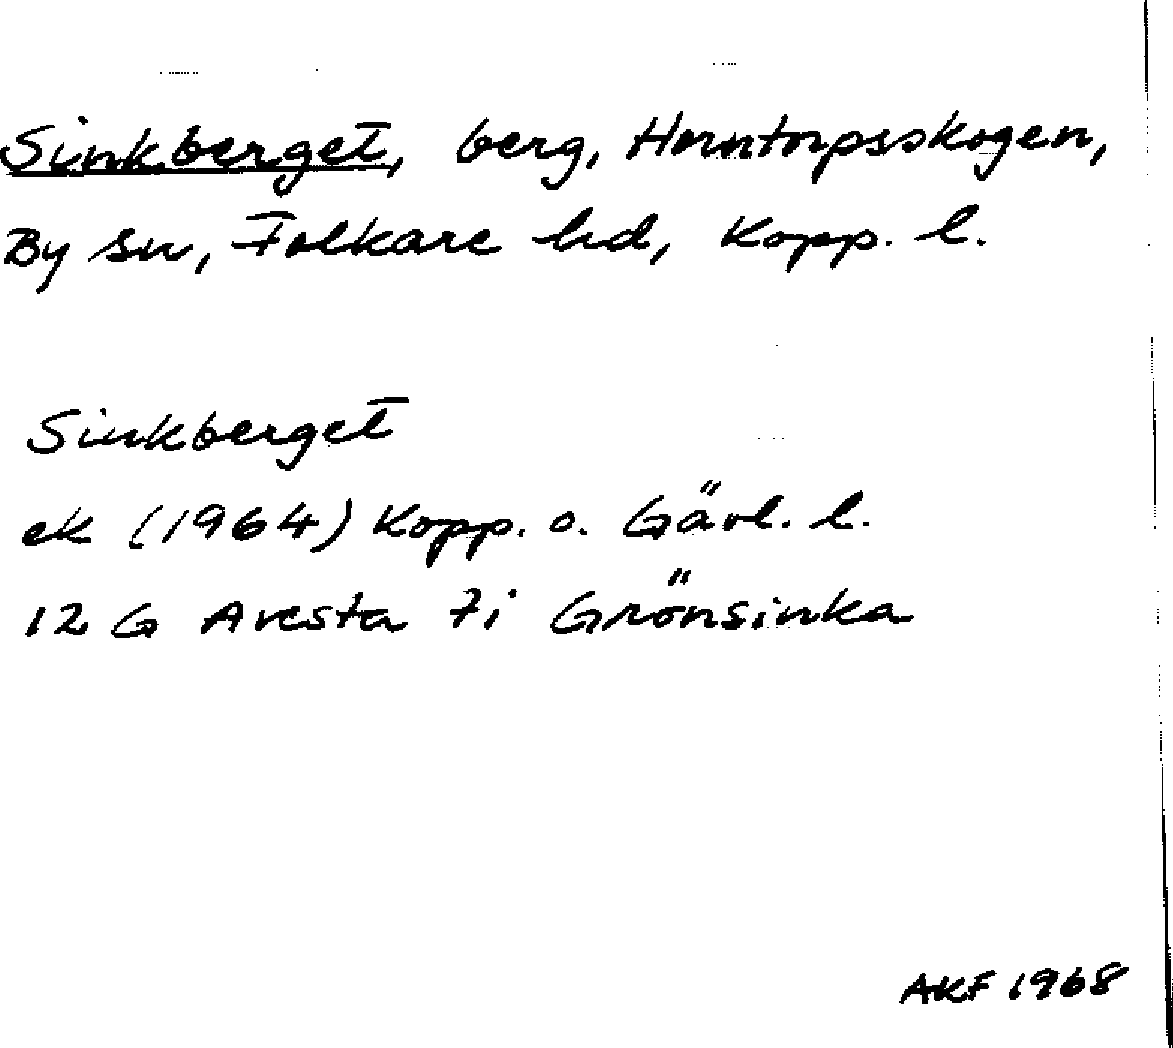 Sinkberget, berg, Horntorpsskogen,
By sn, Folkare hd, Kopp. l.
Sinkberget
ek (1964) Kopp. o. Gävl. l.
12 G Avesta 7i Grönsinka
AKF 1968